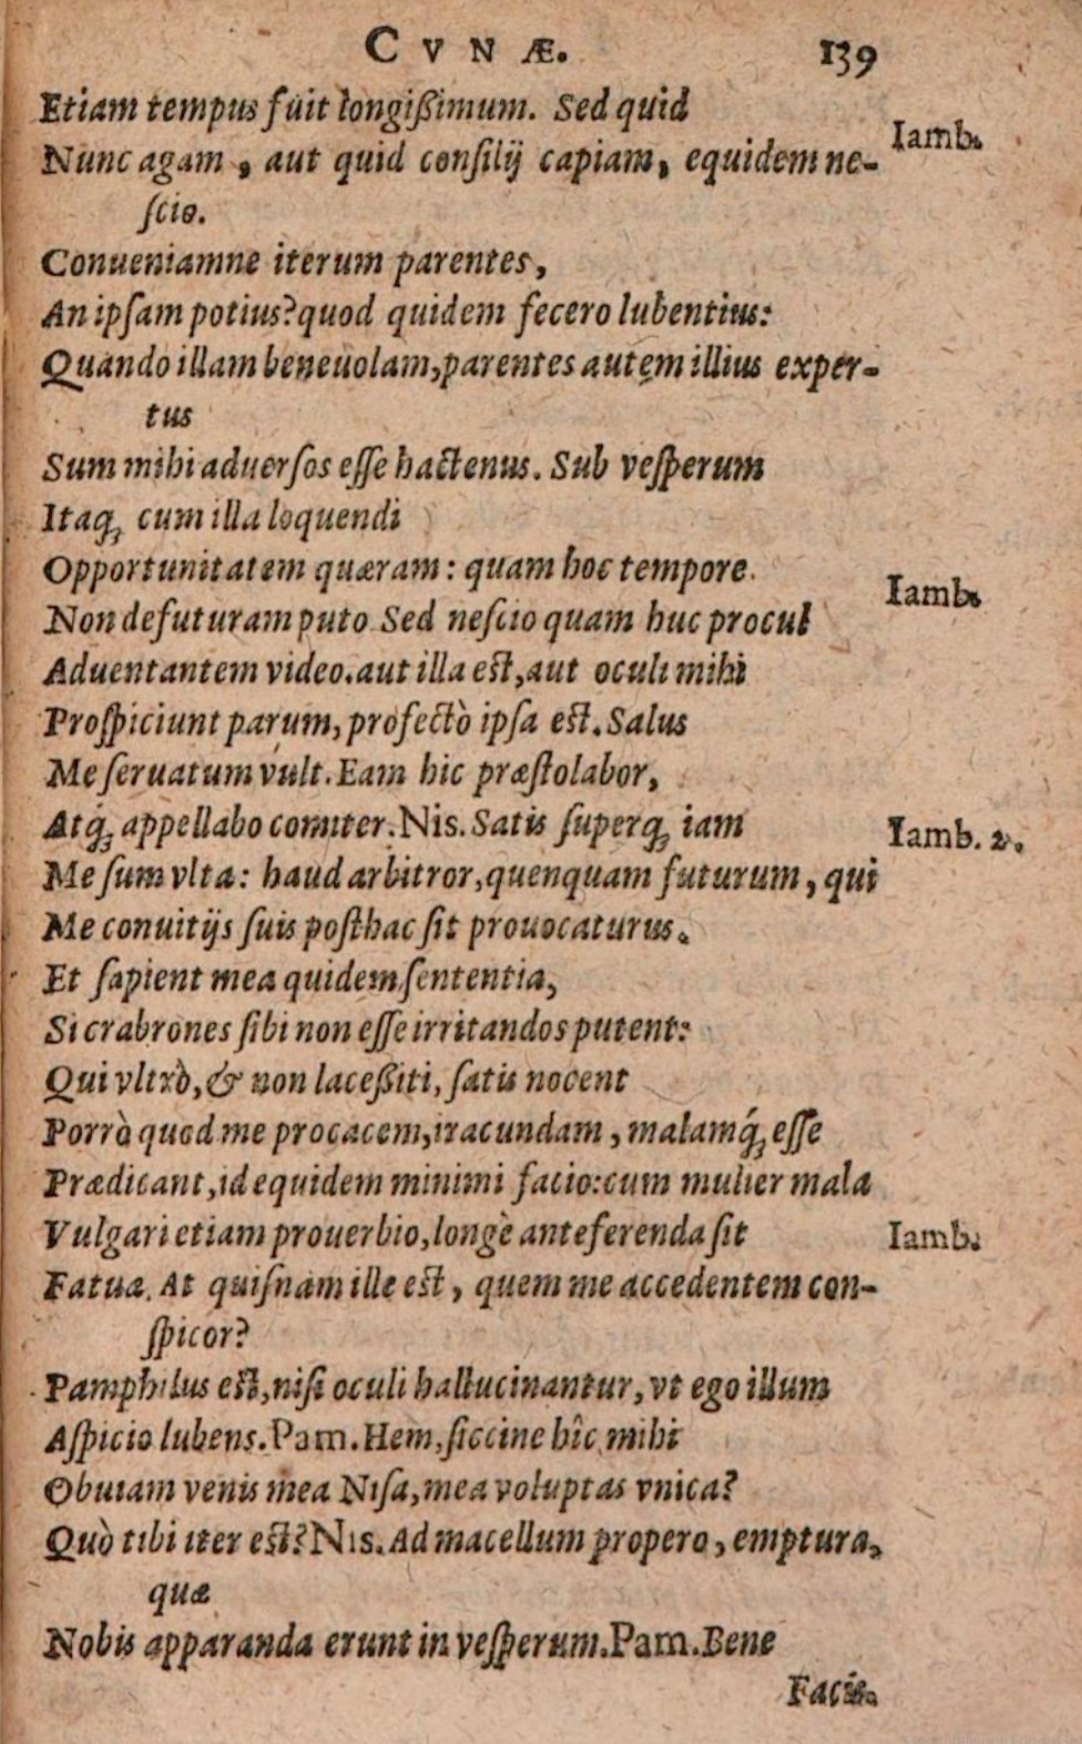 CVNÆ. 139
Etiam tempus fuit longißimum. Sed quid
Iamb.
Nunc agam, aut quid consilij capiam, equidem ne-
scio.
Conueniamne iterum parentes,
An ipsam potius? quod quidem fecero lubentius:
Quando illam beneuolam, parentes autem illius exper-
tus
Sum mihi aduersos esse hactenus. Sub vesperum
Itaq; cum illa loquendi
Opportunitatem quæram: quam hoc tempore.
Iamb.
Non defuturam puto Sed nescio quam huc procul
Aduentantem video. aut illa est, aut oculi mihi
Prospiciunt parum, profectò ipsa est. Salus
Me seruatum vult. Eam hic præstolabor,
Atq́; appellabo comiter. Nis. Satis superq; iam
Iamb. 2.
Me sum vlta: haud arbitror, quenquam futurum, qui
Me conuitijs suis posthac sit prouocaturus.
Et sapient mea quidem sententia,
Si crabrones sibi non esse irritandos putent:
Qui vltrò, & non laceßiti, satis nocent
Porrò quod me procacem, iracundam, malamq́; esse
Prædicant, id equidem minimi facio: cum mulier mala
Vulgari etiam prouerbio, longè anteferenda sit
Iamb.
Fatua. At quisnam ille est, quem me accedentem con-
spicor?
Pamphilus est, nisi oculi hallucinantur, vt ego illum
Aspicio lubens. Pam. Hem, siccine hîc mihi
Obuiam venis mea Nisa, mea voluptas vnica?
Quò tibi iter est? Nis. Ad macellum propero, emptura,
quæ
Nobis apparanda erunt in vesperum. Pam. Bene
Facis.